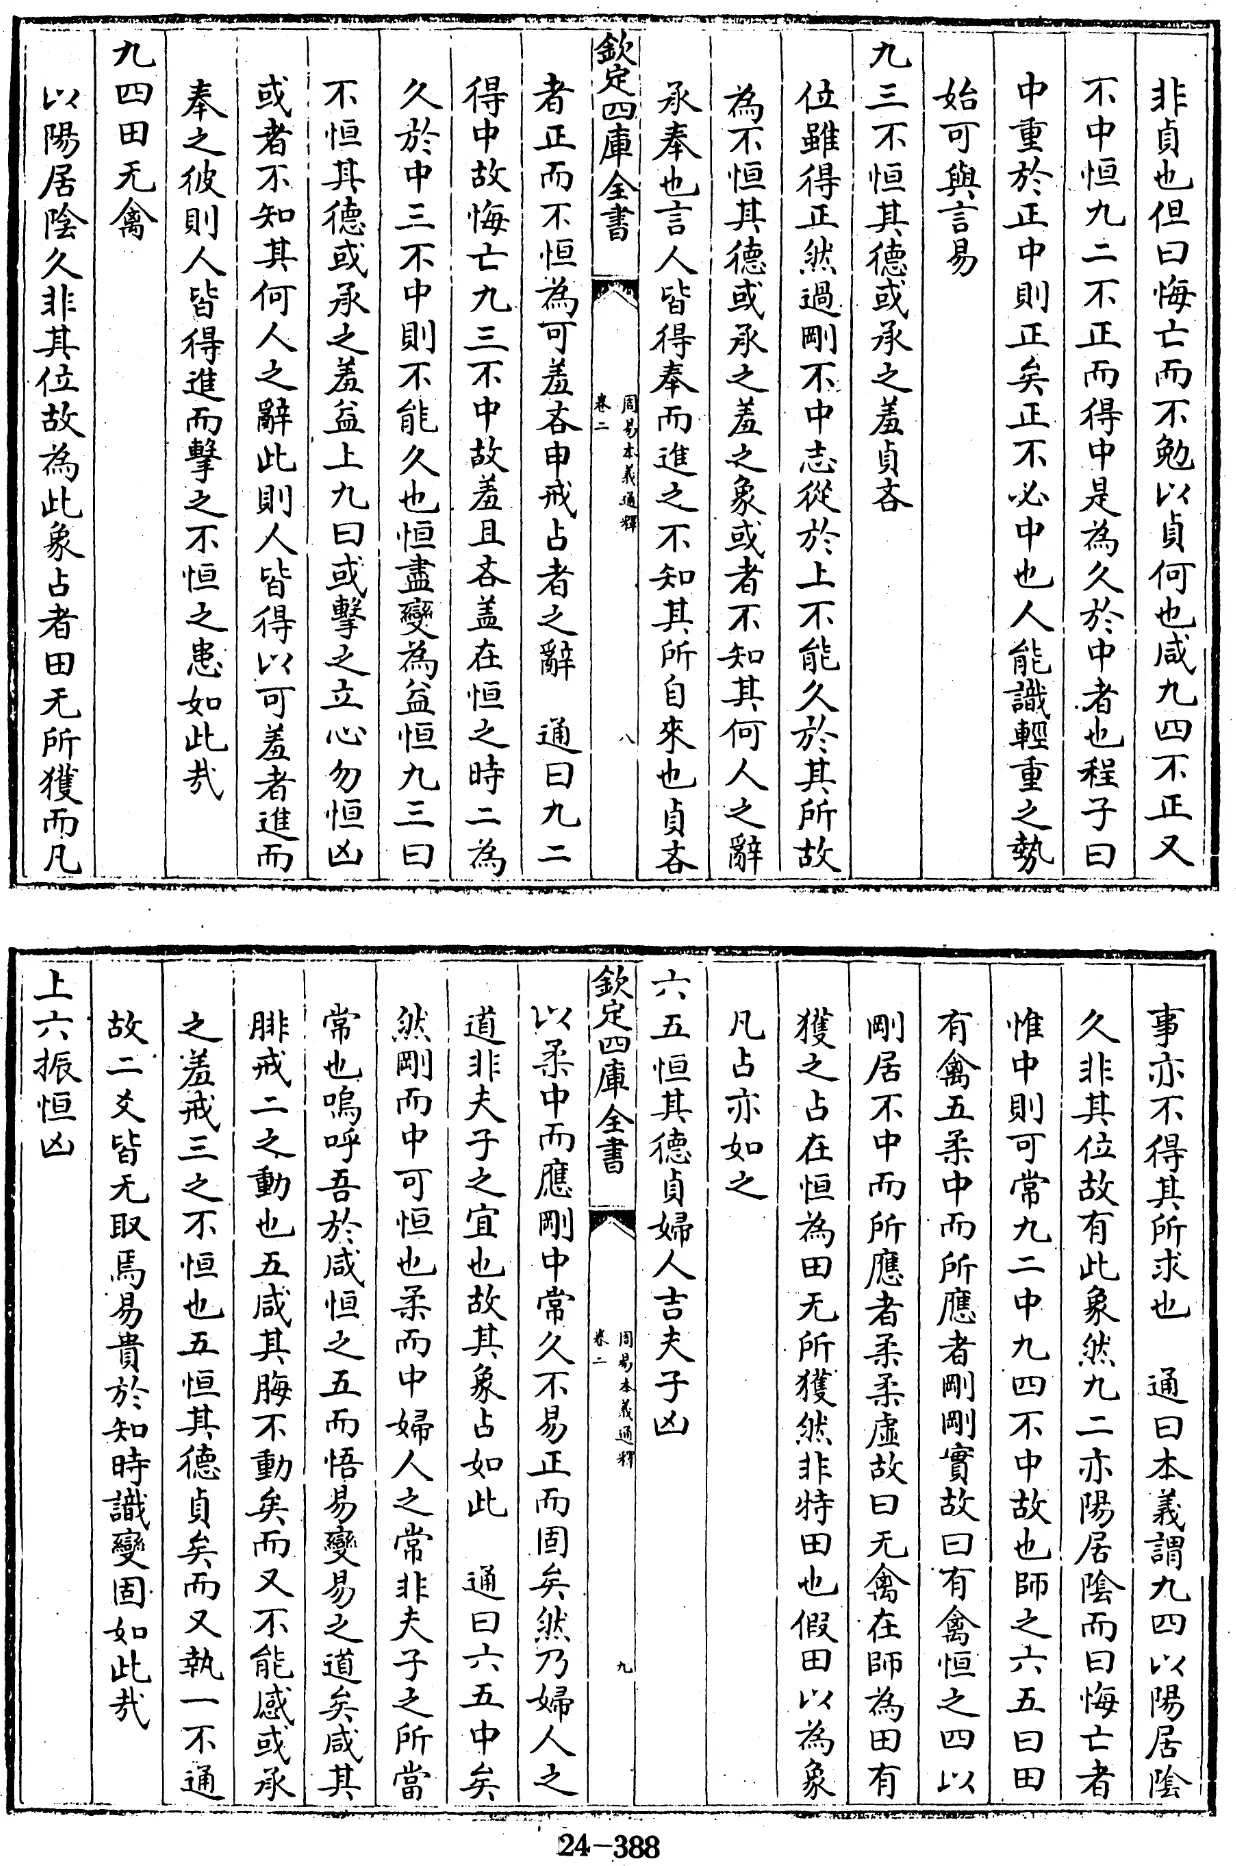 非貞也但曰悔亡而不勉以貞何也咸九四不正又
不中恒九二不正而得中是為久於中者也程子曰
中重於正中則正矣正不必中也人能識輕重之勢
始可與言易
九三不恒其德或承之羞貞吝
位雖得正然過剛不中志從於上不能久於其所故
為不恒其德或承之羞之象或者不知其何人之辭
承奉也言人皆得奉而進之不知其所自來也貞吝
欽定四庫全書
周易本義通釋
卷二
八
者正而不恒為可羞吝申戒占者之辭　通曰九二
得中故悔亡九三不中故羞且吝蓋在恒之時二為
久於中三不中則不能久也恒盡變為益恒九三曰
不恒其德或承之羞益上九曰或擊之立心勿恒凶
或者不知其何人之辭此則人皆得以可羞者進而
奉之彼則人皆得進而擊之不恒之患如此哉
九四田无禽
以陽居陰久非其位故為此象占者田无所獲而凡
事亦不得其所求也　通曰本義謂九四以陽居陰
久非其位故有此象然九二亦陽居陰而曰悔亡者
惟中則可常九二中九四不中故也師之六五曰田
有禽五柔中而所應者剛剛實故曰有禽恒之四以
剛居不中而所應者柔柔虛故曰无禽在師為田有
獲之占在恒為田无所獲然非特田也假田以為象
凡占亦如之
六五恒其德貞婦人吉夫子凶
欽定四庫全書
周易本義通釋
卷二
九
以柔中而應剛中常久不易正而固矣然乃婦人之
道非夫子之宜也故其象占如此　通曰六五中矣
然剛而中可恒也柔而中婦人之常非夫子之所當
常也嗚呼吾於咸恒之五而悟易變易之道矣咸其
腓戒二之動也五咸其脢不動矣而又不能感或承
之羞戒三之不恒也五恒其德貞矣而又執一不通
故二爻皆无取焉易貴於知時識變固如此哉
上六振恒凶
24-388